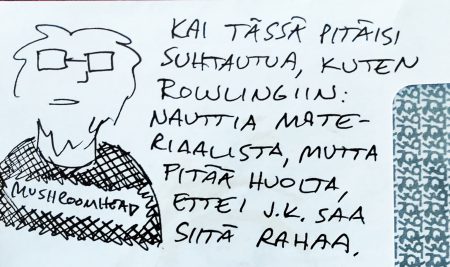 KAI TÄSSÄ PITÄISI
SUHTAUTUA, KUTEN
ROWLINGIIN:
NAUTTIA MATE-
RIAALISTA, MUTTA
PITÄÄ HUOLTA,
ETTEI J.K. SAA
SIITÄ RAHAA.
MUSHROOMHEAD